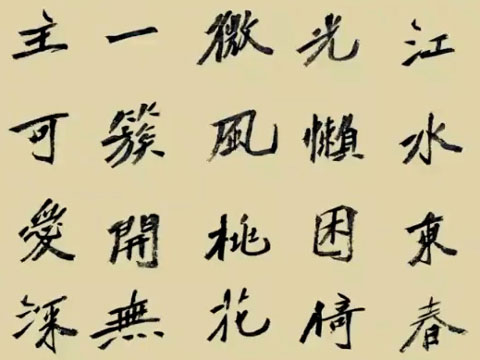 江水東春
光懶困倚
微風桃花
一簇開無
主可愛深